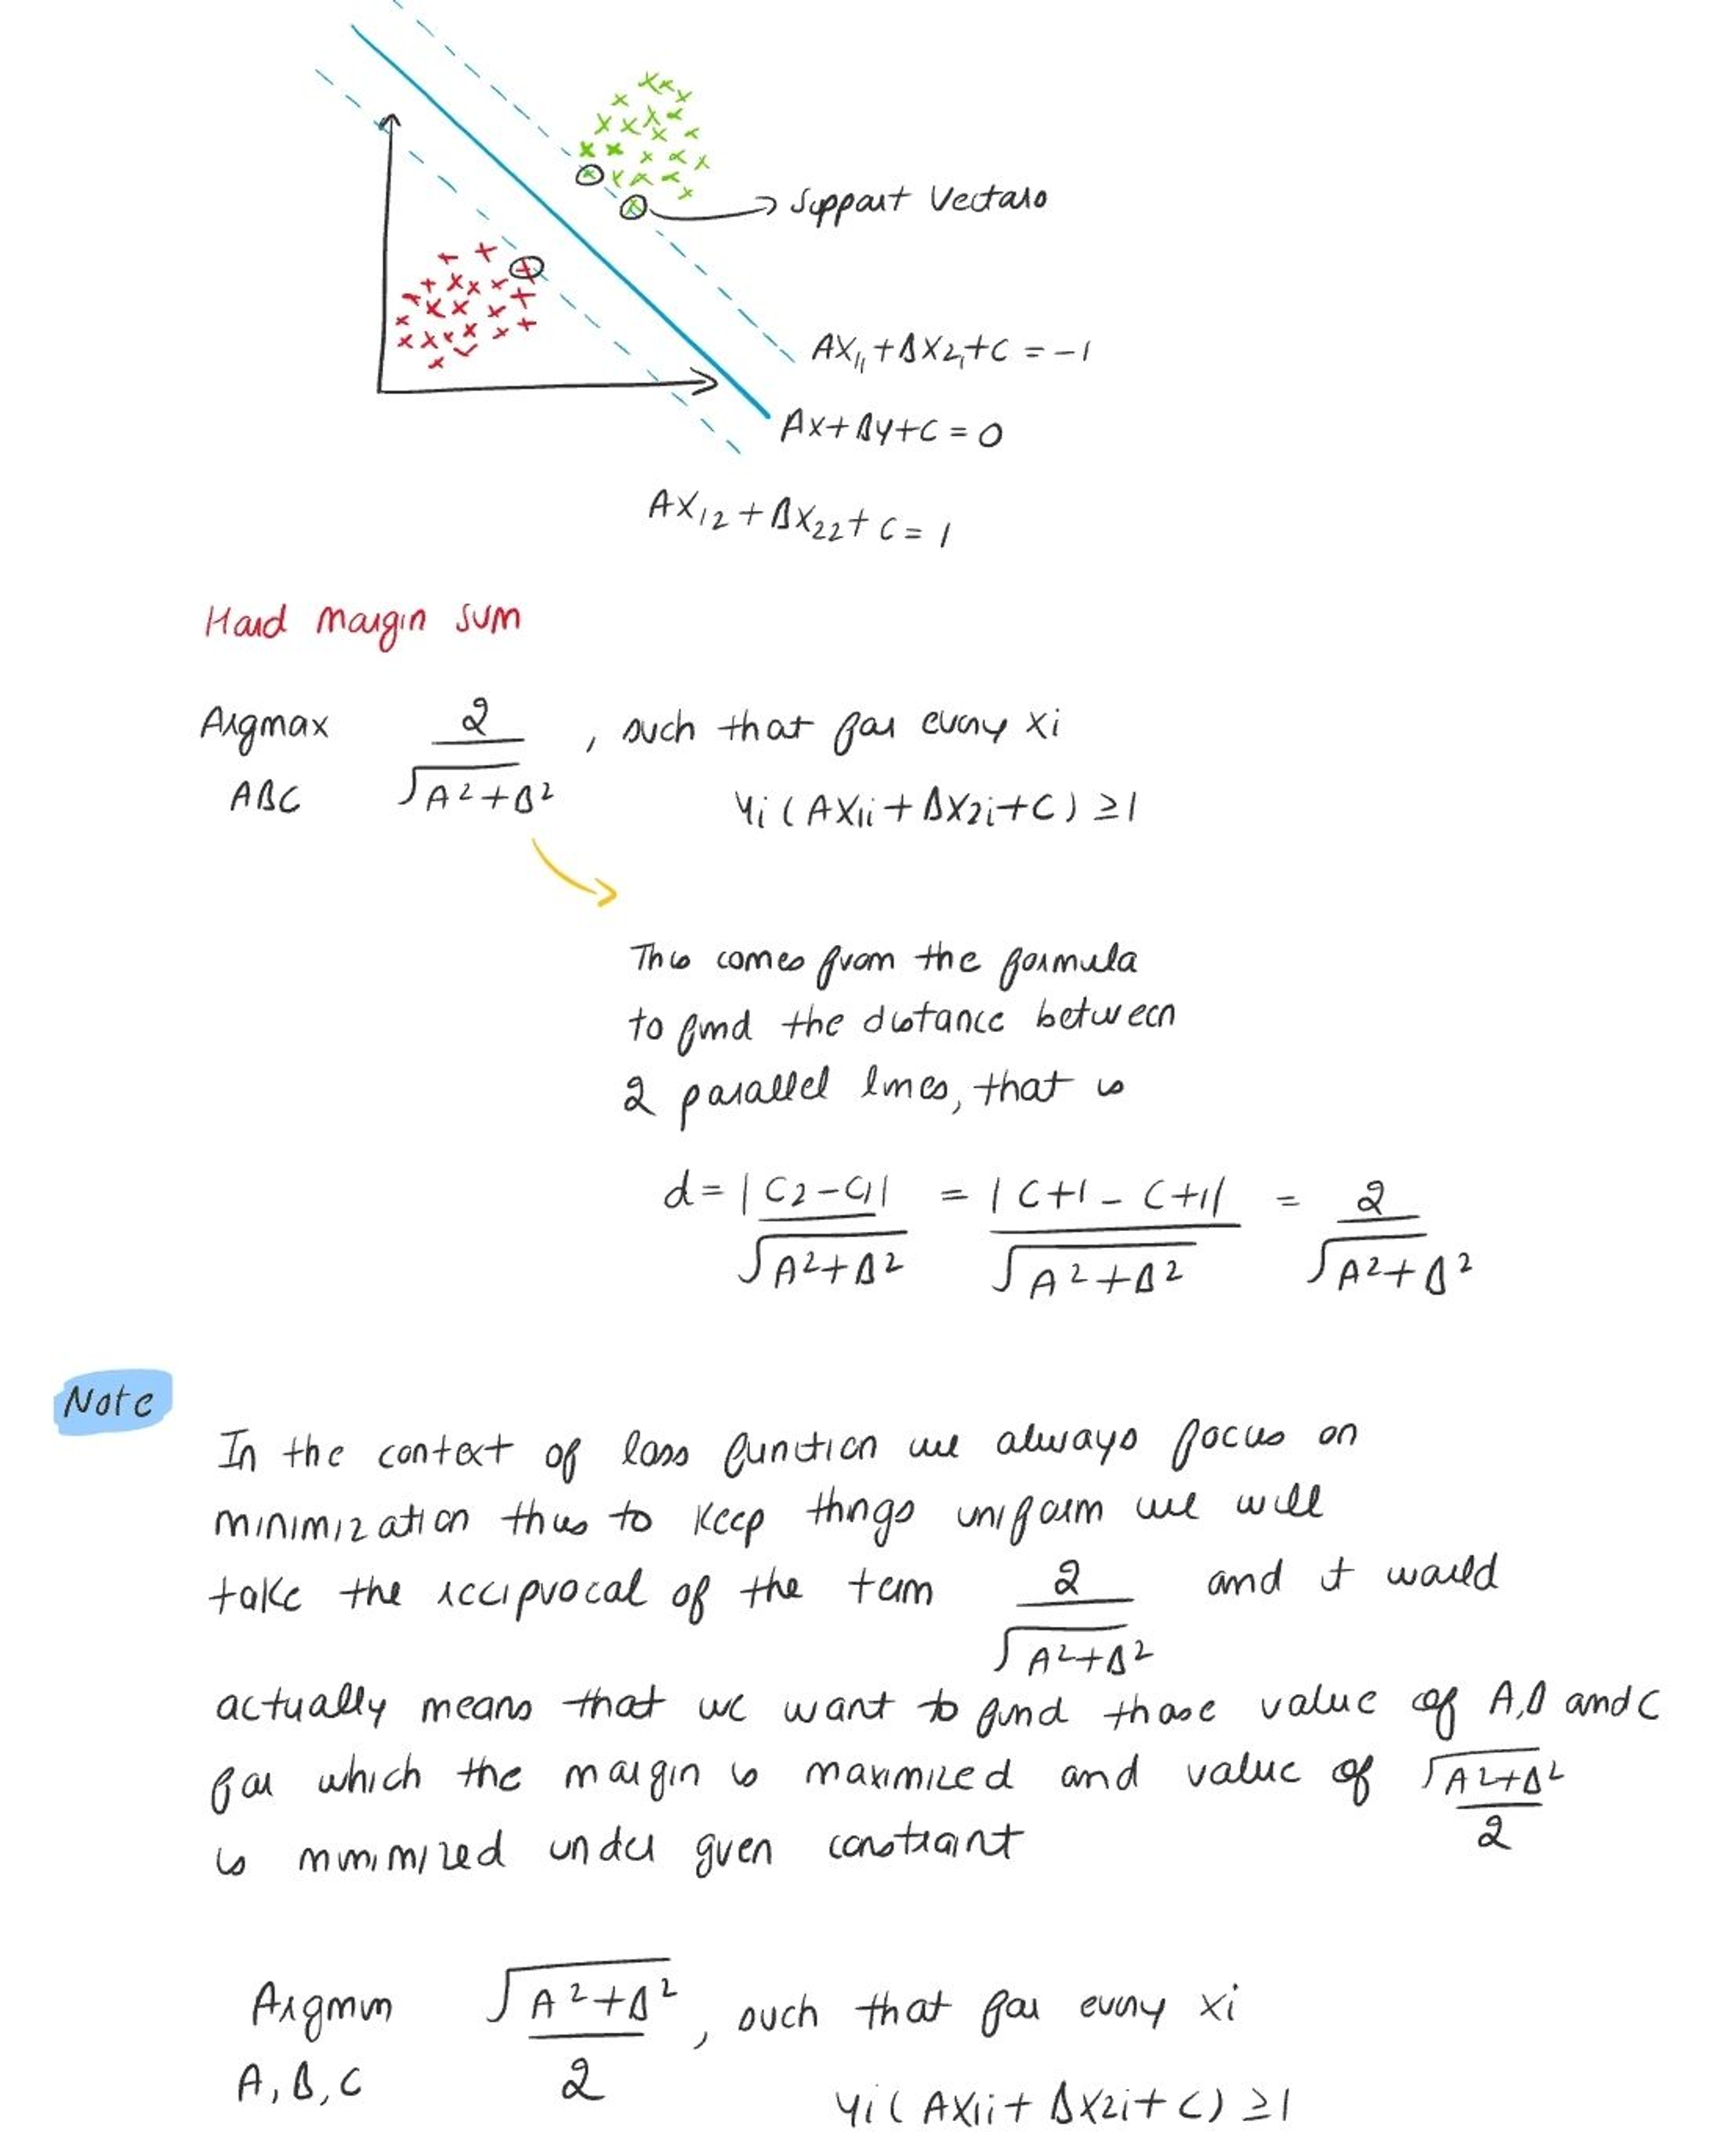 Support Vectors
AX₁₁ + BX₂₁ + C = -1
AX + BY + C = 0
AX₁₂ + BX₂₂ + C = 1
Hard margin SVM
Argmax 2 / √A² + B² , such that for every xi
ABC
yi ( AX1i + BX2i + C ) ≥ 1
This comes from the formula
to find the distance between
2 parallel lines, that is
d = | C2 - C1 | / √A² + B² = | C+1 - C+1 | / √A² + B² = 2 / √A² + B²
Note
In the context of loss function we always focus on
minimization thus to keep things uniform we will
take the reciprocal of the term 2 / √A² + B² and it would
actually means that we want to find those value of A,B and C
for which the margin is maximized and value of √A² + B² / 2
is minimized under given constraint
Argmin √A² + B² / 2 , such that for every xi
A, B, C
yi ( AX1i + BX2i + C ) ≥ 1